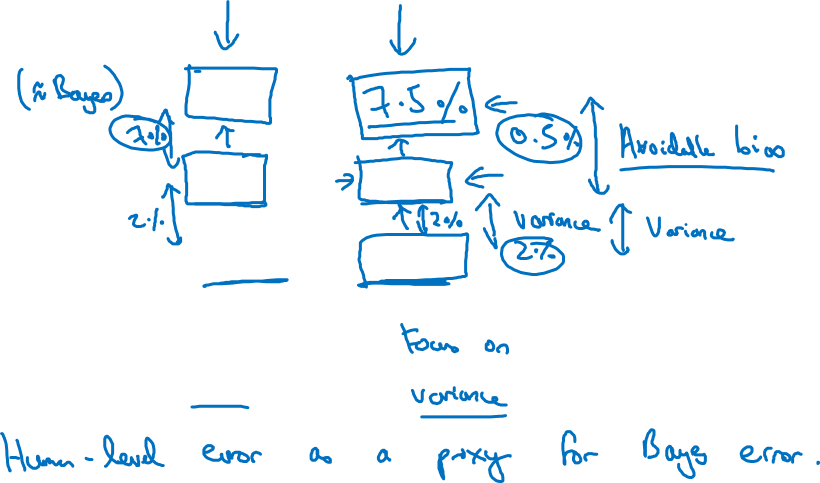 (≈ Bayes)
7.5%
7%
0.5%
Avoidable bias
2%
2%
variance
Variance
2%
Focus on
variance
Human-level error as a proxy for Bayes error.